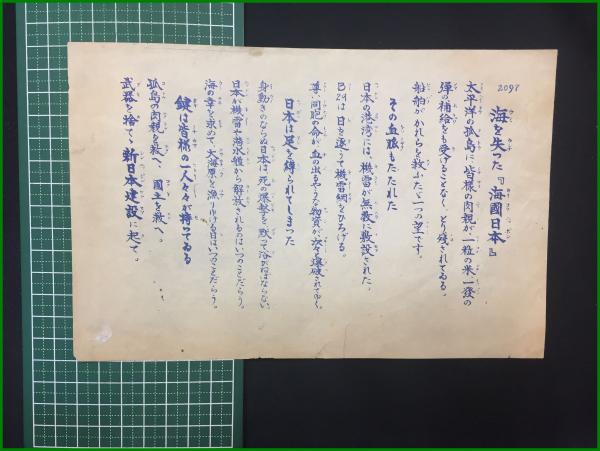 2098
海を失った『海國日本』
太平洋の孤島に皆様の肉親が一粒の米一發の
彈の補給をも受けることなくとり殘されてゐる。
船舶がかれらを救ふたゞ一つの望です。
その血脈もたたれた
日本の港湾には、機雷が無数に敷設された。
B29は日を逐うて機雷網をひろげる。
尊い同胞の命が、血の出るやうな物資が次々爆破されてゆく。
日本は足を縛られてしまった
身動きのならぬ日本は死の爆撃を黙って浴びねばならない。
日本が機雷や港湾から解放されるのはいつのことだらう。
海の幸を求めて、大海原を漁りゆける日はいつのことだらう。
鍵は皆様の一人々々が持ってゐる
孤島の肉親を救へ、國土を救へ。
武器を捨てゝ新日本建設に起て。